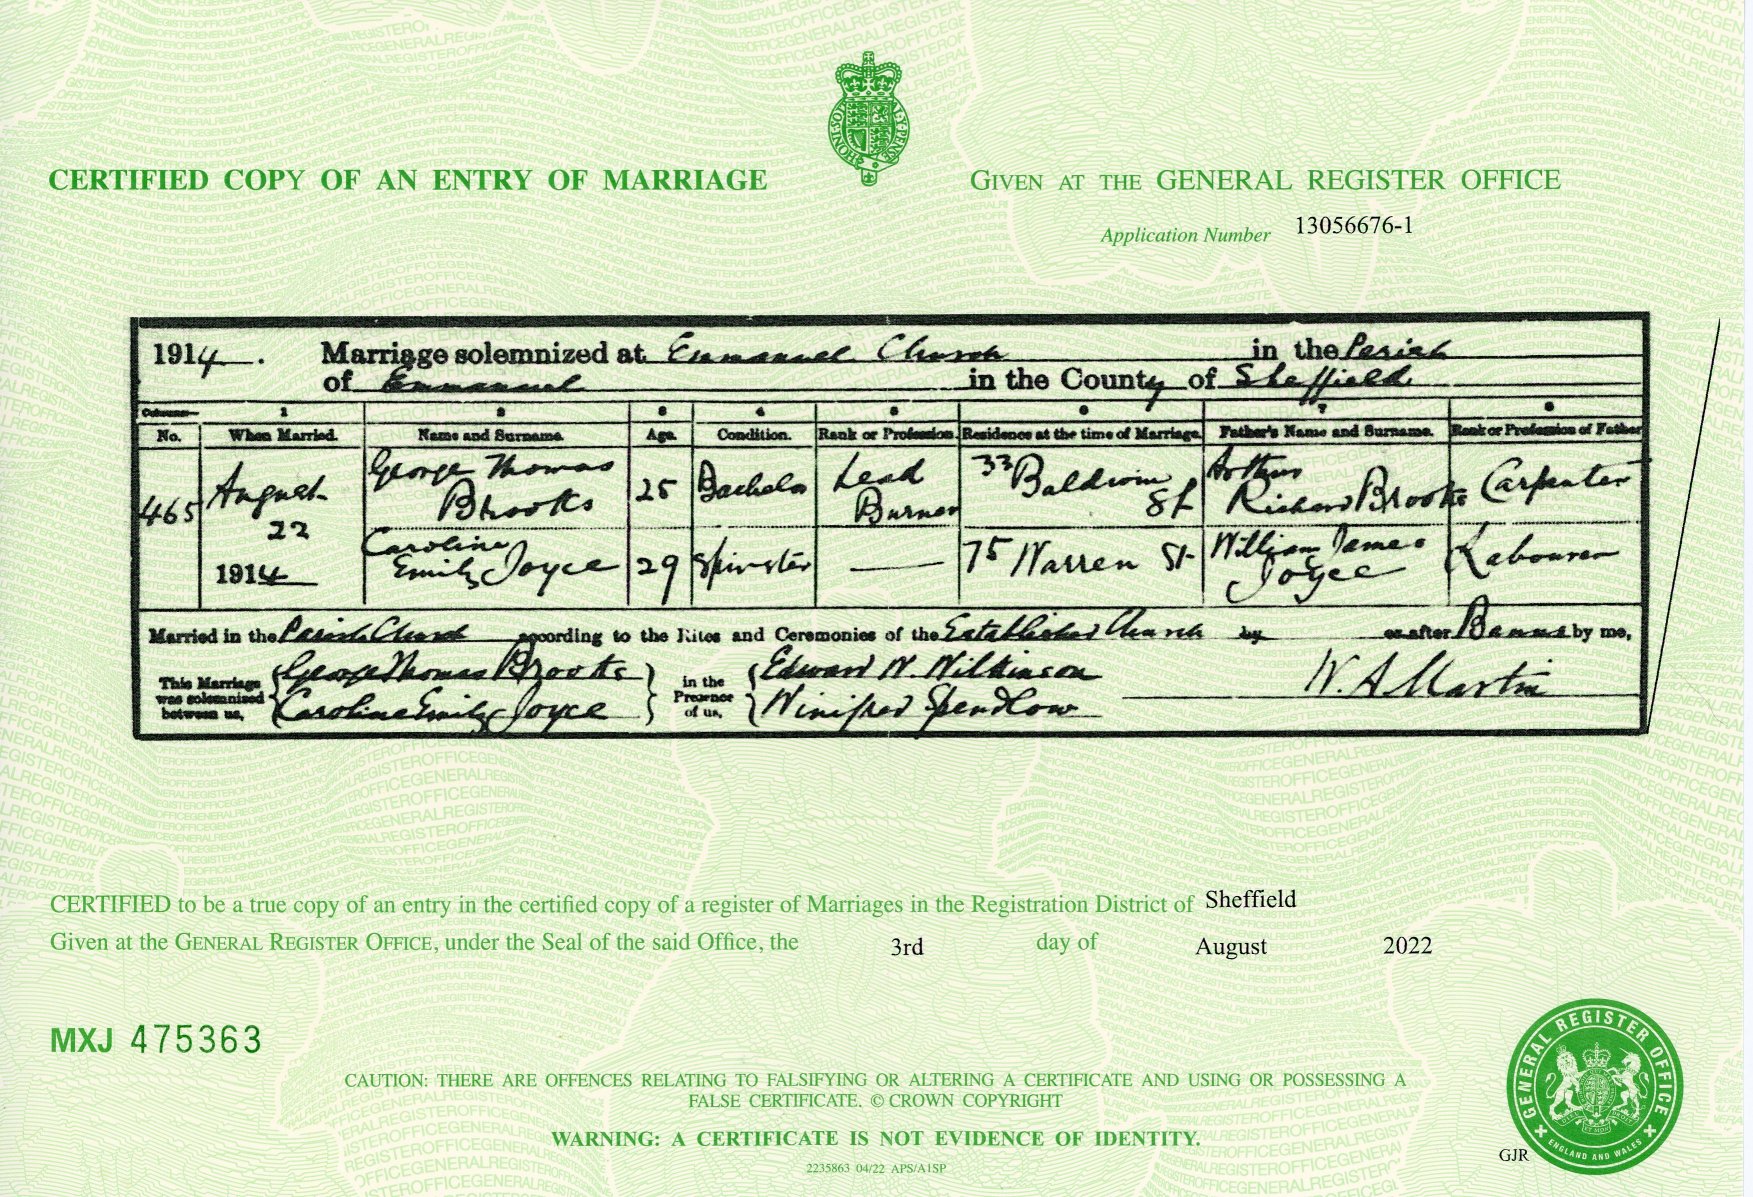 CERTIFIED COPY OF AN ENTRY OF MARRIAGE
GIVEN AT THE GENERAL REGISTER OFFICE
Application Number 13056676-1
1914. Marriage solemnized at Emmanuel Church in the Parish
of Emmanuel in the County of Sheffield
Columns:— 1 2 3 4 5 6 7 8
No. When Married. Name and Surname. Age. Condition. Rank or Profession. Residence at the time of Marriage. Father's Name and Surname. Rank or Profession of Father
465 August 22 1914
George Thomas Brooks 25 Bachelor Lead Burner 33 Baldwin St Arthur Richard Brooks Carpenter
Caroline Emily Joyce 29 Spinster — 75 Warren St William James Joyce Labourer
Married in the Parish Church according to the Rites and Ceremonies of the Established Church by or after Banns by me,
This Marriage was solemnized between us, { George Thomas Brooks } in the Presence of us, { Edward W. Wilkinson W. A Martin
Caroline Emily Joyce Winifred Spendlow
CERTIFIED to be a true copy of an entry in the certified copy of a register of Marriages in the Registration District of Sheffield
Given at the GENERAL REGISTER OFFICE, under the Seal of the said Office, the 3rd day of August 2022
MXJ 475363
CAUTION: THERE ARE OFFENCES RELATING TO FALSIFYING OR ALTERING A CERTIFICATE AND USING OR POSSESSING A
FALSE CERTIFICATE. © CROWN COPYRIGHT
WARNING: A CERTIFICATE IS NOT EVIDENCE OF IDENTITY.
2235863 04/22 APS/A1SP
GJR
GENERAL REGISTER OFFICE
ENGLAND AND WALES